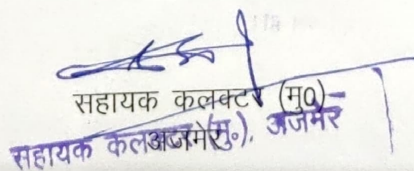 सहायक कलक्टर (मु0)
अजमेर
सहायक कलक्टर (मु०), अजमेर